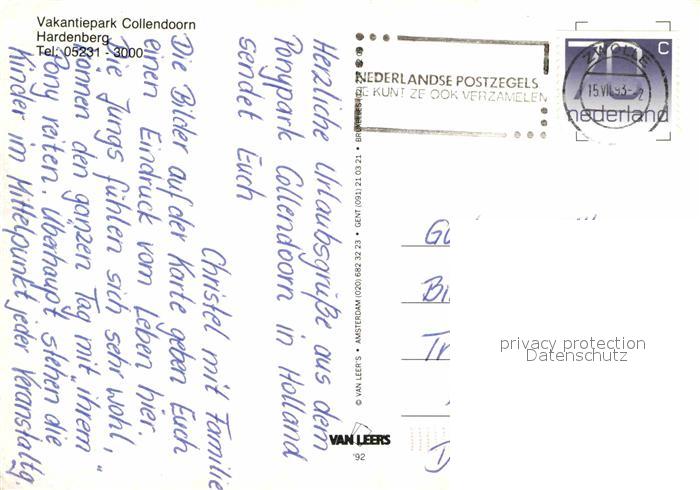 Vakantiepark Collendoorn
Hardenberg
Tel: 05231 - 3000
Herzliche Urlaubsgrüße aus dem
Ponypark Collendoorn in Holland
sendet Euch
Christel mit Familie
Die Bilder auf der Karte geben Euch
einen Eindruck vom Leben hier.
Die Jungs fühlen sich sehr wohl,
können den ganzen Tag mit „ihrem“
Pony reiten. Überhaupt stehen die
Kinder im Mittelpunkt jeder Veranstaltg.
© VAN LEER'S • AMSTERDAM (020) 682 32 23 • GENT (091) 21 03 21 •
VAN LEERS
'92
NEDERLANDSE POSTZEGELS
JE KUNT ZE OOK VERZAMELEN
ZWOLLE
15 VII 93
70 c
nederland
Bi
Tr
D
privacy protection
Datenschutz